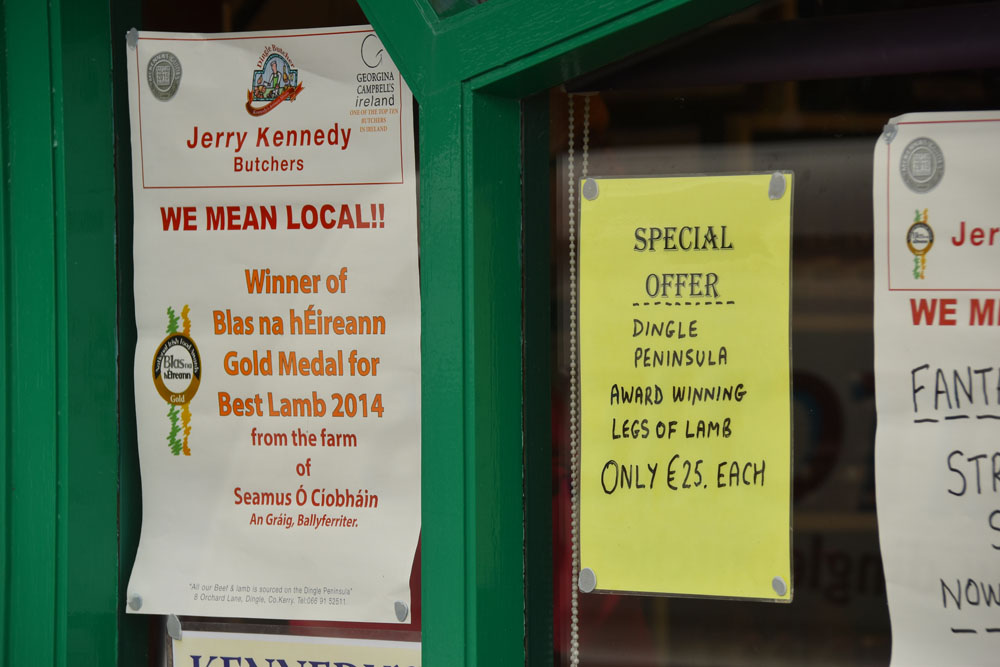 Dingle Butcher
GEORGINA
CAMPBELL'S
ireland
ONE OF THE TOP TEN
BUTCHERS
IN IRELAND
Jerry Kennedy
Butchers
WE MEAN LOCAL!!
Winner of
Blas na hÉireann
Gold Medal for
Best Lamb 2014
from the farm
of
Seamus Ó Cíobháin
An Gráig, Ballyferriter.
National Irish Food Awards
Blas na
hÉireann
Gold
"All our Beef & lamb is sourced on the Dingle Peninsula"
8 Orchard Lane, Dingle, Co.Kerry, Tel:066 91 52511.
KENNEDY'S
SPECIAL
OFFER
DINGLE
PENINSULA
AWARD WINNING
LEGS OF LAMB
ONLY €25. EACH
Jer
WE M
FANTA
STR
S
NOW